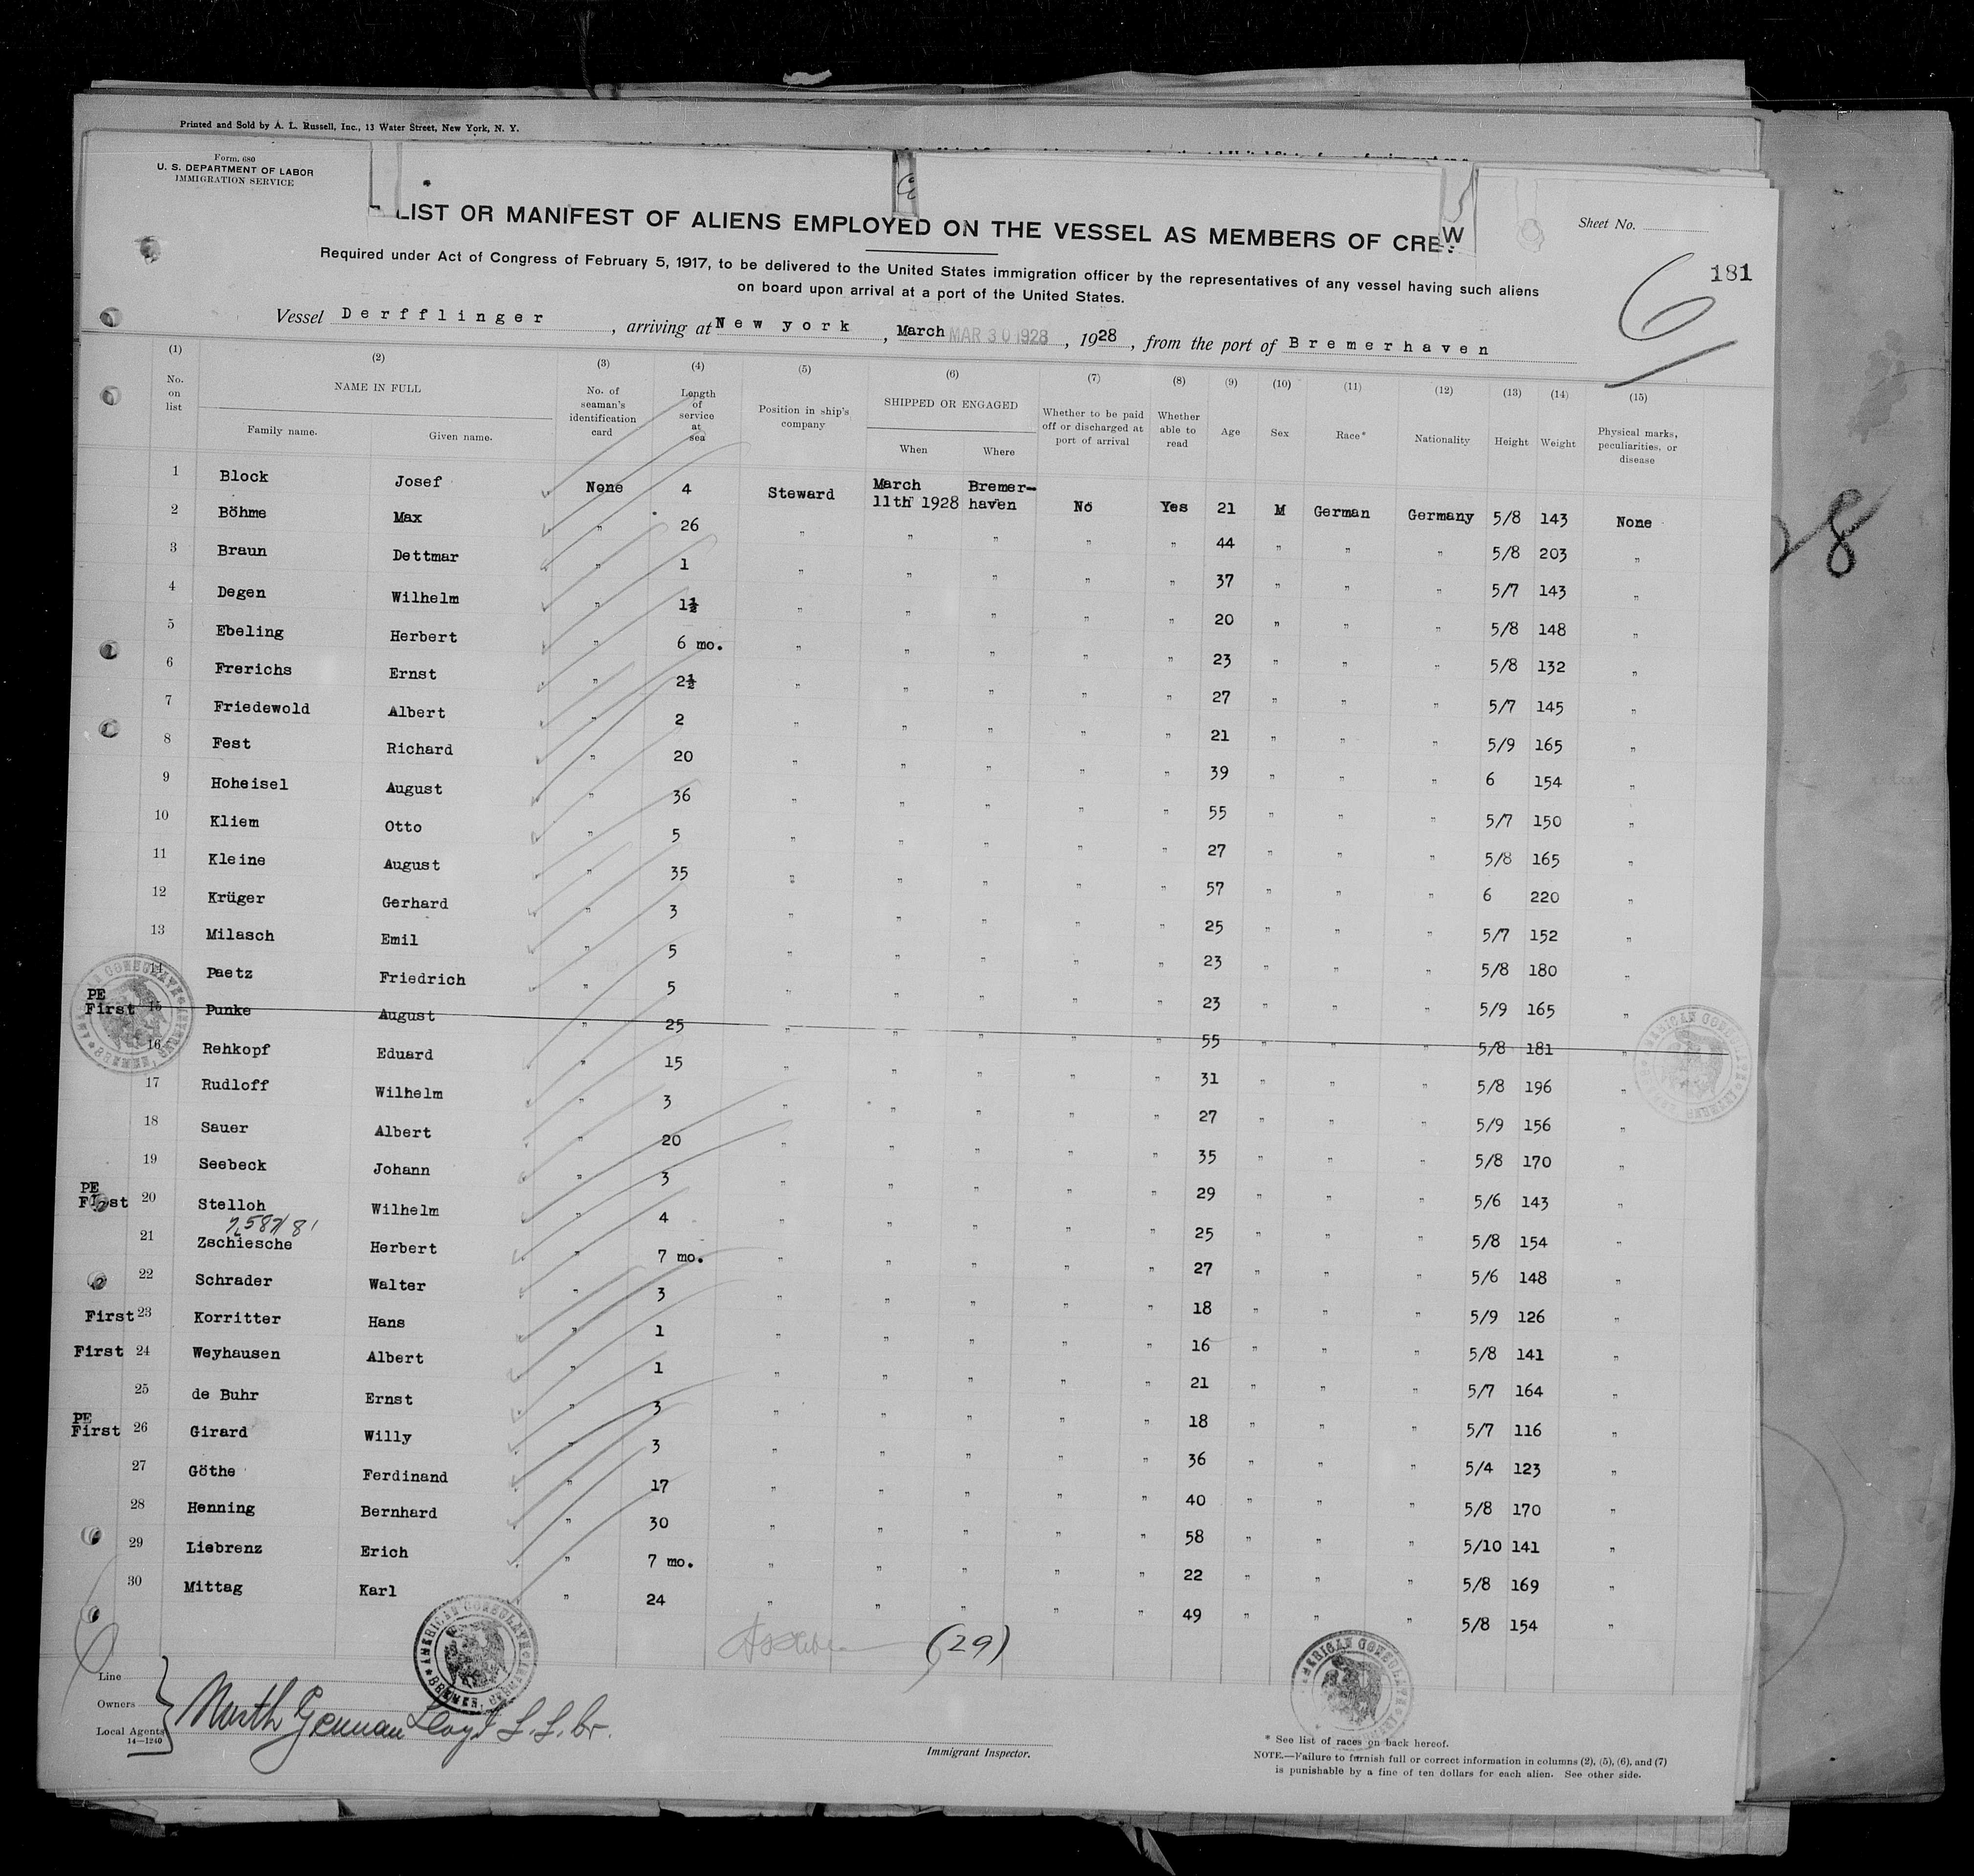 Printed and Sold by A. L. Russell, Inc., 13 Water Street, New York, N. Y.
Form. 680
U. S. DEPARTMENT OF LABOR
IMMIGRATION SERVICE
LIST OR MANIFEST OF ALIENS EMPLOYED ON THE VESSEL AS MEMBERS OF CREW
Sheet No.
181
6
Required under Act of Congress of February 5, 1917, to be delivered to the United States immigration officer by the representatives of any vessel having such aliens
on board upon arrival at a port of the United States.
Vessel Derfflinger, arriving at New york, March MAR 30 1928, 1928, from the port of Bremerhaven
(1) (2) (3) (4) (5) (6) (7) (8) (9) (10) (11) (12) (13) (14) (15)
No. on list NAME IN FULL Family name. Given name. No. of seaman's identification card Length of service at sea Position in ship's company SHIPPED OR ENGAGED When Where Whether to be paid off or discharged at port of arrival Whether able to read Age Sex Race* Nationality Height Weight Physical marks, peculiarities, or disease
1 Block Josef None 4 Steward March 11th 1928 Bremer-haven No Yes 21 M German Germany 5/8 143 None
2 Böhme Max " 26 " " " " " 44 " " " 5/8 203 "
3 Braun Dettmar " 1 " " " " " 37 " " " 5/7 143 "
4 Degen Wilhelm " 1½ " " " " " 20 " " " 5/8 148 "
5 Ebeling Herbert " 6 mo. " " " " " 23 " " " 5/8 132 "
6 Frerichs Ernst " 2½ " " " " " 27 " " " 5/7 145 "
7 Friedewold Albert " 2 " " " " " 21 " " " 5/9 165 "
8 Fest Richard " 20 " " " " " 39 " " " 6 154 "
9 Hoheisel August " 36 " " " " " 55 " " " 5/7 150 "
10 Kliem Otto " 5 " " " " " 27 " " " 5/8 165 "
11 Kleine August " 35 " " " " " 57 " " " 6 220 "
12 Krüger Gerhard " 3 " " " " " 25 " " " 5/7 152 "
13 Milasch Emil " 5 " " " " " 23 " " " 5/8 180 "
14 Paetz Friedrich " 5 " " " " " 23 " " " 5/9 165 "
PE First 15 Punke August " 25 " " " " " 55 " " " 5/8 181 "
16 Rehkopf Eduard " 15 " " " " " 31 " " " 5/8 196 "
17 Rudloff Wilhelm " 3 " " " " " 27 " " " 5/9 156 "
18 Sauer Albert " 20 " " " " " 35 " " " 5/8 170 "
19 Seebeck Johann " 3 " " " " " 29 " " " 5/6 143 "
PE First 20 Stelloh Wilhelm " 4 " " " " " 25 " " " 5/8 154 "
21 Zschiesche Herbert " 7 mo. " " " " " 27 " " " 5/6 148 "
22 Schrader Walter " 3 " " " " " 18 " " " 5/9 126 "
First 23 Korritter Hans " 1 " " " " " 16 " " " 5/8 141 "
First 24 Weyhausen Albert " 1 " " " " " 21 " " " 5/7 164 "
25 de Buhr Ernst " 3 " " " " " 18 " " " 5/7 116 "
PE First 26 Girard Willy " 3 " " " " " 36 " " " 5/4 123 "
27 Göthe Ferdinand " 17 " " " " " 40 " " " 5/8 170 "
28 Henning Bernhard " 30 " " " " " 58 " " " 5/10 141 "
29 Liebrenz Erich " 7 mo. " " " " " 22 " " " 5/8 169 "
30 Mittag Karl " 24 " " " " " 49 " " " 5/8 154 "
(29)
AMERICAN CONSULATE BREMEN,
Line
Owners
Local Agents
14—1240
North German Lloyd S. S. Co.
Immigrant Inspector.
* See list of races on back hereof.
NOTE.—Failure to furnish full or correct information in columns (2), (5), (6), and (7)
is punishable by a fine of ten dollars for each alien. See other side.